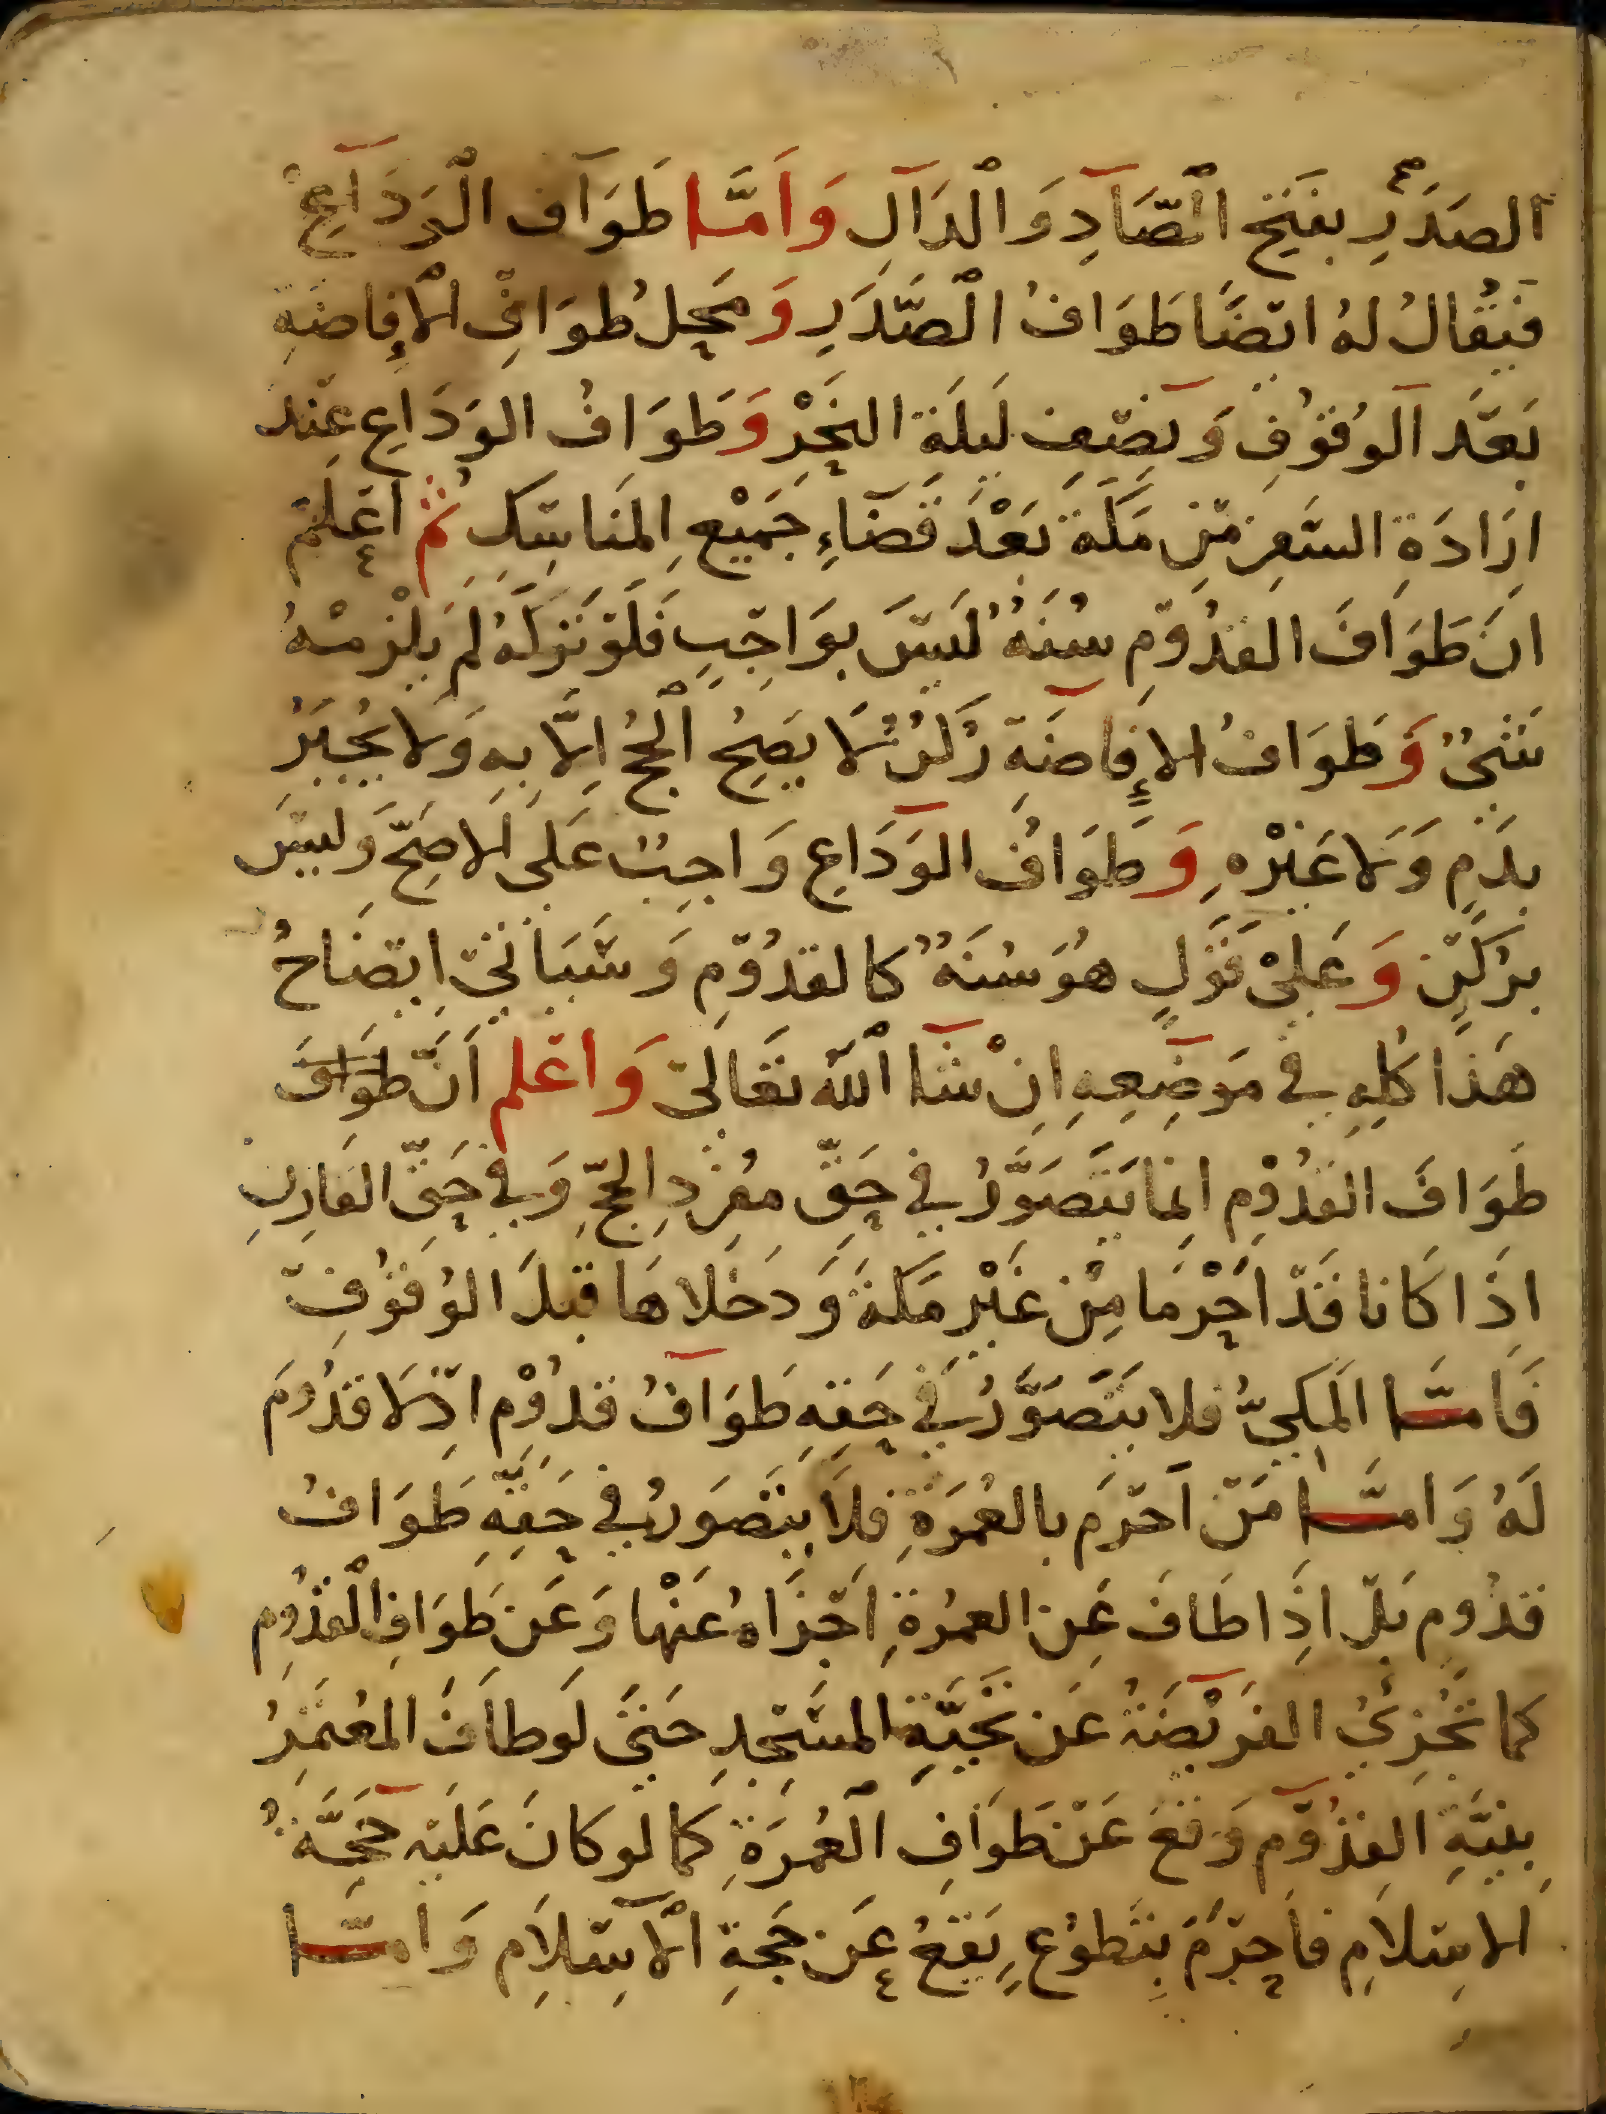 الصَدَرِ بفَتحِ الصَّادِ وَالْدَالِ وَاَمَّا طَوَاف الْوَدَاعِ
فَيُقَالُ لهُ ايضًا طَوَافُ الْصَّدَرِ وَمَحِلُ طوَافِ الْاِفاضَةِ
بَعْدَ الوُقوْفِ وَنِصْفِ لَيلَةِ النَحْرِ وَطوَافُ الوِدَاعِ عِند
اِرَادَةِ السَفَرِ مِنْ مَكَةَ بَعْدَ قَضَاءِ جَمِيْعِ المَنَاسِكِ ثمَّ اعْلَمْ
انَ طَوَافَ القدُوْمِ سُنَةٌ لَيْسَ بوَاجِبٍ فَلَوْ تَرَكَهُ لمْ يَلْزمْهُ
شَئٌ وَطوَافُ الاِفَاضَةِ رُكنٌ لَا يَصِحُ الْحَجُ اِلَّا بهِ وَلا يُجْبَرُ
بِدَمٍ وَلَا غَيْرْهِ وَطوَافُ الوَدَاعِ وَاجِبٌ عَلَى الاصَحِّ وَلَيْسَ
برُكْنٍ وَعَلىْ قَوْلٍ هُوَ سُنَةٌ كالقدُوْمِ وَسَيَأتيْ اِيْضَاحُ
هَذا كُلِهِ في مَوْضِعِهِ اِنْ شَا اللهُ تَعَالىْ وَاعْلم اَنَّ طوَافَ
طَوَافَ القدُوْمِ انمَا يَتَصَوَّرُ في حَقِّ مفرِدِ الحجِّ وَفي حَقِّ القارِنِ
اذَا كَانا قَدْ اَحْرَمَا مِنْ غَيْرِ مَكةَ وَدَخَلاهَا قبْلَ الوُقوْفِ
فَاَمَّا المَكِيُّ فلا يَتَصَوَّرُ في حَقِهِ طَوَافُ قدُوْمٍ اذْ لَا قدُوْمَ
لَهُ وَامَّا مَنْ اَحْرَمَ بالعُمْرَةِ فلَا يَتَصَوَرُ في حَقِهِ طَوَافُ
قدُومٍ بَلْ اِذَا طَافَ عَن العمْرَةِ اَجْزَاهُ عَنْها وَعَن طَوَافِ الْقدُوْمِ
كما تُجْزِئُ الفَرِيْضَةُ عَن تَحِيَّةِ المسْجِدِ حَتىَ لَو طافَ المعْتَمِرُ
بِنِيَّةِ القدُوْمِ وَقعَ عَنْ طَوَافِ الْعُمرَةِ كما لو كانَ عَلَيْه حَجَّةُ
الاِسْلامِ فاَحْرَمَ بِتَطوُعٍ يَقعُ عَن حَجةِ الْاِسْلَامِ وَامَّا